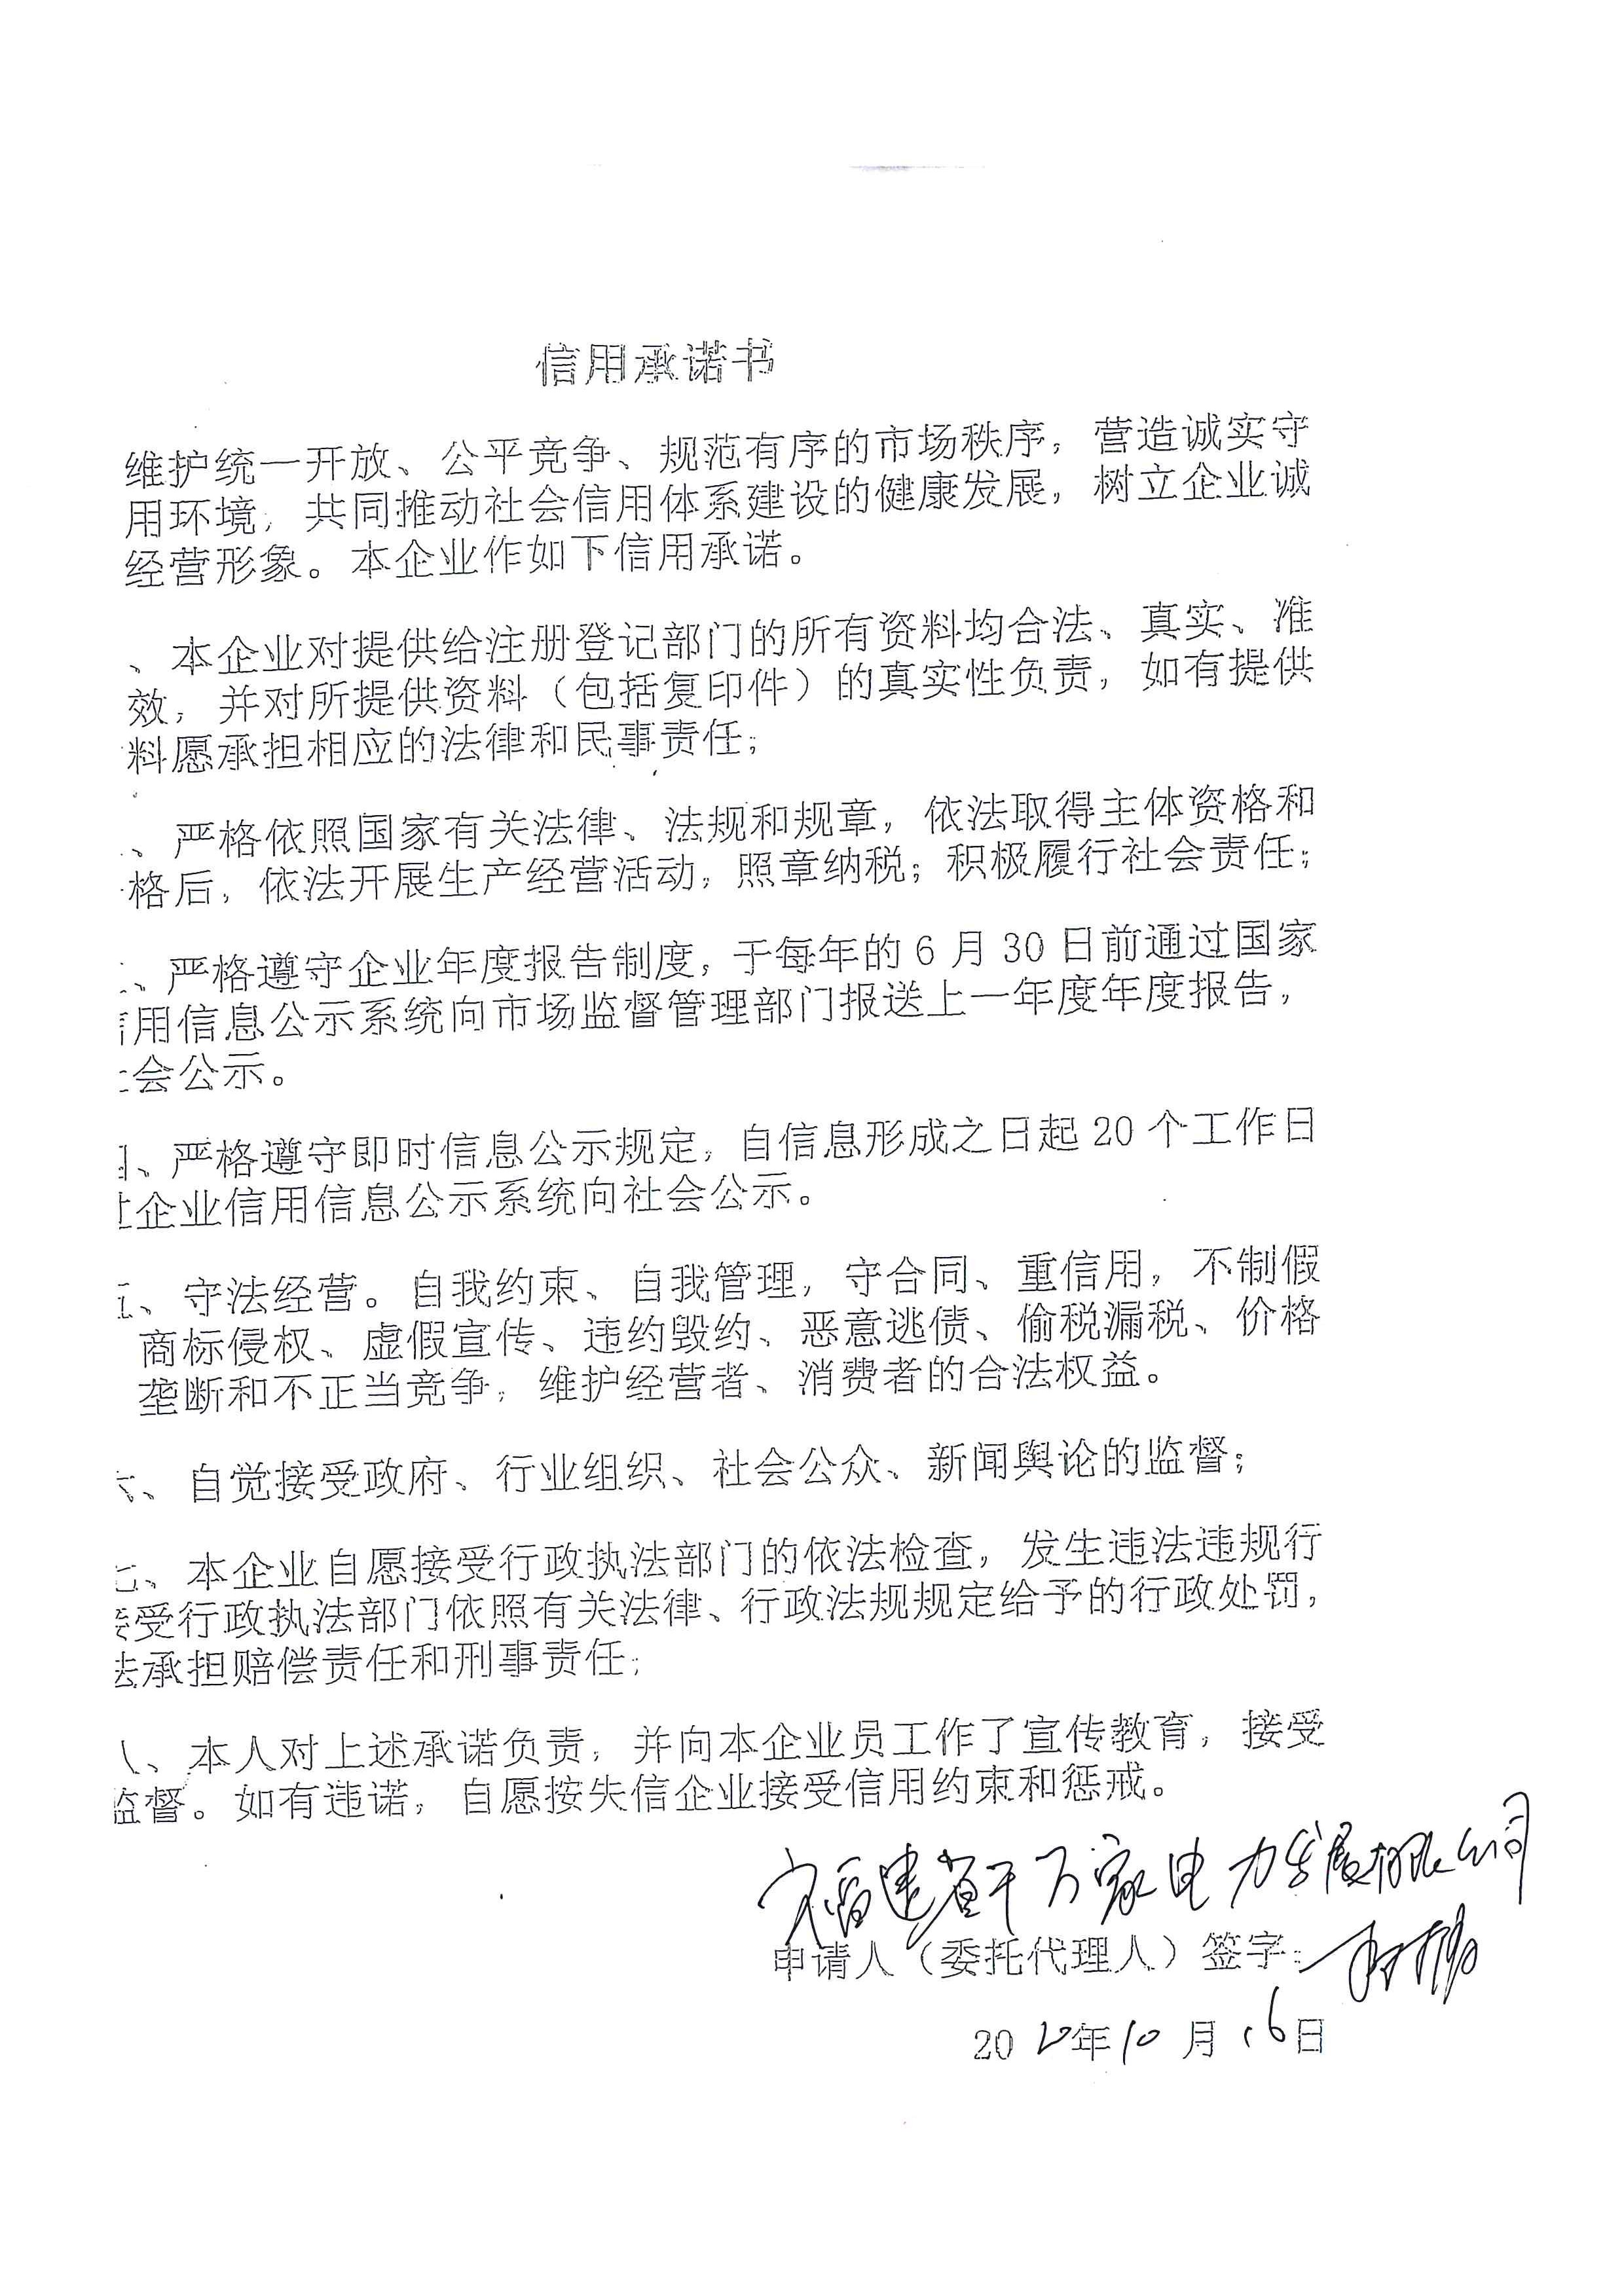 信用承诺书
维护统一开放、公平竞争、规范有序的市场秩序，营造诚实守
用环境，共同推动社会信用体系建设的健康发展，树立企业诚
经营形象。本企业作如下信用承诺。
、本企业对提供给注册登记部门的所有资料均合法、真实、准
效，并对所提供资料（包括复印件）的真实性负责，如有提供
料愿承担相应的法律和民事责任；
、严格依照国家有关法律、法规和规章，依法取得主体资格和
格后，依法开展生产经营活动，照章纳税；积极履行社会责任；
、严格遵守企业年度报告制度，于每年的6月30日前通过国家
用信息公示系统向市场监督管理部门报送上一年度年度报告，
会公示。
、严格遵守即时信息公示规定，自信息形成之日起20个工作日
企业信用信息公示系统向社会公示。
五、守法经营。自我约束、自我管理，守合同、重信用，不制假
商标侵权、虚假宣传、违约毁约、恶意逃债、偷税漏税、价格
垄断和不正当竞争，维护经营者、消费者的合法权益。
六、自觉接受政府、行业组织、社会公众、新闻舆论的监督；
七、本企业自愿接受行政执法部门的依法检查，发生违法违规行
受行政执法部门依照有关法律、行政法规规定给予的行政处罚，
法承担赔偿责任和刑事责任；
八、本人对上述承诺负责，并向本企业员工作了宣传教育，接受
监督。如有违诺，自愿按失信企业接受信用约束和惩戒。
福建省千万家电力发展有限公司
申请人（委托代理人）签字：
2020年10月16日